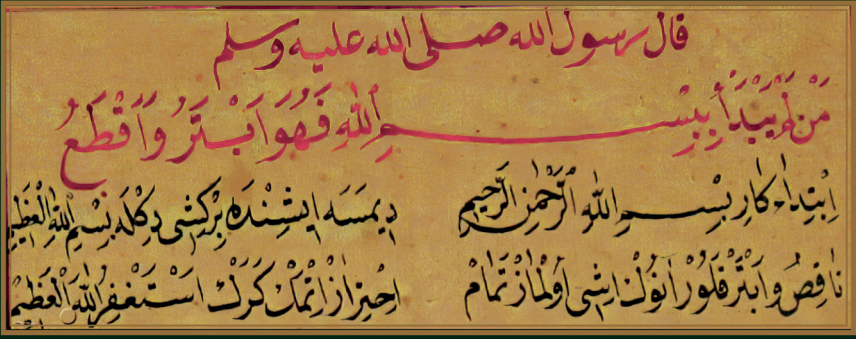 قال رسول الله صلى الله عليه وسلم
مَنْ لَمْ يَبْدَأْ بِبِسْمِ اللهِ فَهُوَ اَبْتَرُ وَاَقْطَعُ
اِبْتِدَاءِ كَارِ بِسْمِ اللهِ الرَّحْمٰنِ الرَّحِيمِ دِيمَسَه اِيشِنْدَه بِرْكِشِى دِكْلَه بِسْمِ اللهِ الْعَظِيمِ
نَاقِصُ وَابْتَرْ قَلُورْ اَنُوكْ اِشِى اُولْمَازْ تَمَامْ اِحْتِرَازْ اِتْمَكْ كَرَكْ اَسْتَغْفِرُ اللهَ الْعَظِيمْ